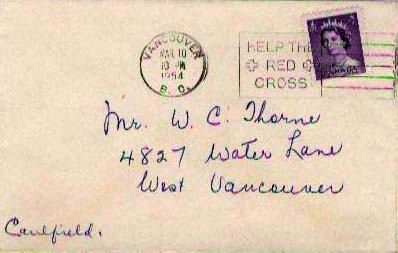 VANCOUVER
MAR 10
1954
B. C.
HELP THE
RED
CROSS
CANADA
Mr. W. C. Thorne
4827 Water Lane
West Vancouver
Caulfield.